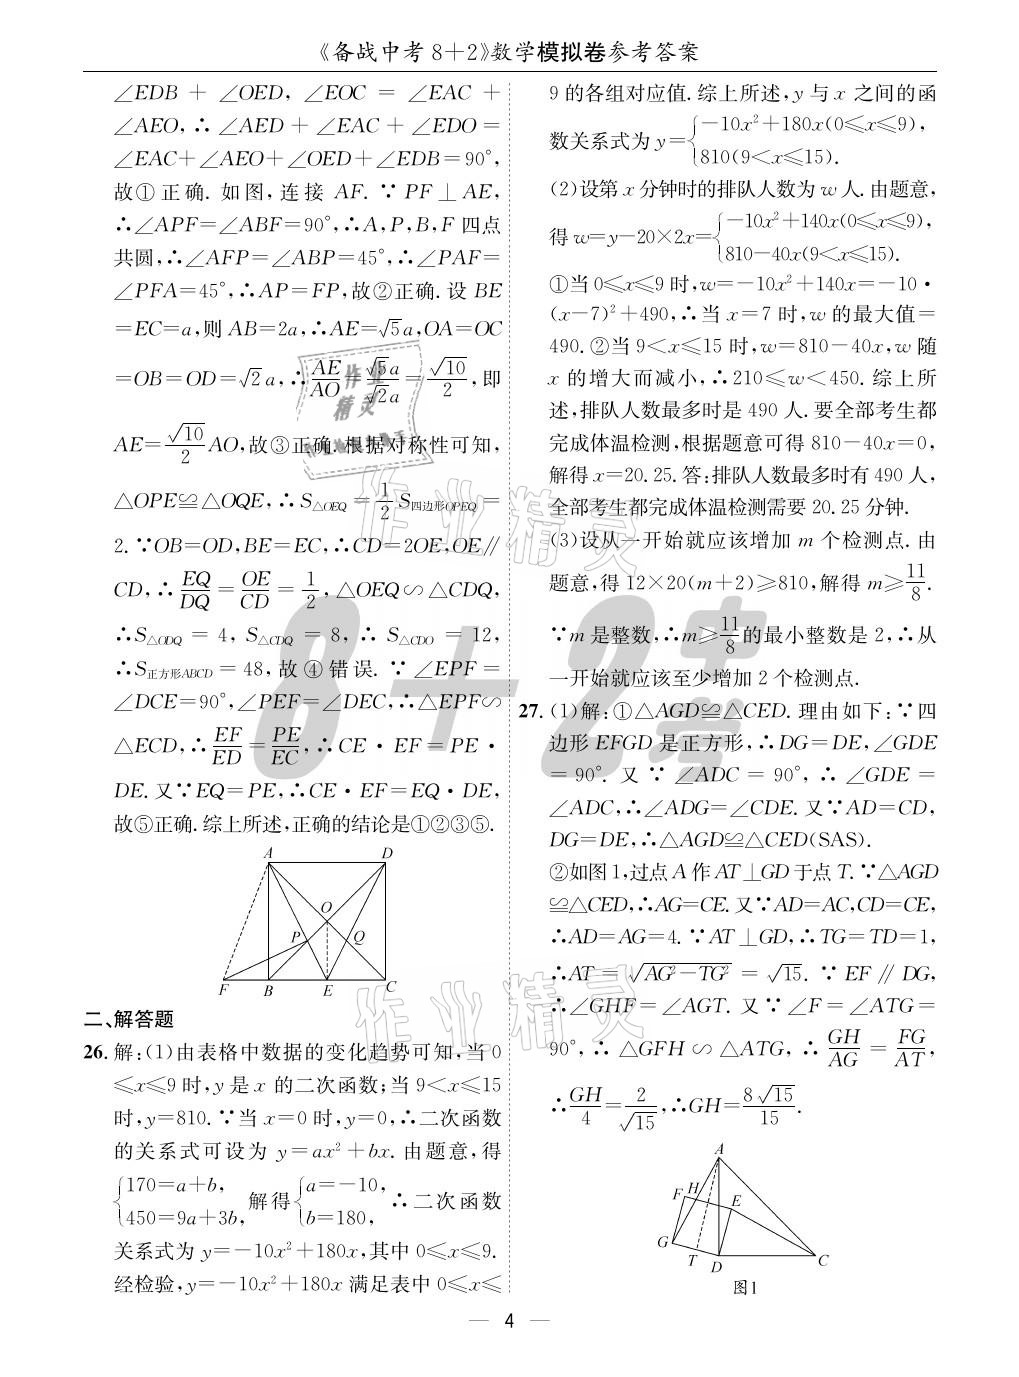 《备战中考8+2》数学模拟卷参考答案
∠EDB + ∠OED, ∠EOC = ∠EAC +
∠AEO,∴∠AED+∠EAC+∠EDO=
∠EAC+∠AEO+∠OED+∠EDB=90°,
故①正确.如图,连接 AF.∵PF⊥AE,
∴∠APF=∠ABF=90°,∴A,P,B,F 四点
共圆,∴∠AFP=∠ABP=45°,∴∠PAF=
∠PFA=45°,∴AP=FP,故②正确.设 BE
=EC=a,则 AB=2a,∴AE=√5a,OA=OC
=OB=OD=√2a,∴AE/AO=√5a/√2a=√10/2,即
AE=√10/2 AO,故③正确.根据对称性可知,
△OPE≌△OQE,∴S△OEQ=1/2 S四边形OPEQ=
2.∵OB=OD,BE=EC,∴CD=2OE,OE∥
CD,∴EQ/DQ=OE/CD=1/2,△OEQ∽△CDQ,
∴S△ODQ = 4, S△CDQ = 8,∴ S△CDO = 12,
∴S正方形ABCD=48,故④错误.∵∠EPF=
∠DCE=90°,∠PEF=∠DEC,∴△EPF∽
△ECD,∴EF/ED=PE/EC,∴CE·EF=PE·
DE.又∵EQ=PE,∴CE·EF=EQ·DE,
故⑤正确.综上所述,正确的结论是①②③⑤.
A D
O
P Q
F B E C
二、解答题
26.解:(1)由表格中数据的变化趋势可知,当0
≤x≤9时,y是x的二次函数;当9<x≤15
时,y=810.∵当x=0时,y=0,∴二次函数
的关系式可设为y=ax²+bx.由题意,得
{170=a+b, 450=9a+3b, 解得{a=-10, b=180, ∴二次函数
关系式为y=-10x²+180x,其中0≤x≤9.
经检验,y=-10x²+180x满足表中0≤x≤
9的各组对应值.综上所述,y与x之间的函
数关系式为y={-10x²+180x(0≤x≤9), 810(9<x≤15).
(2)设第x分钟时的排队人数为w人.由题意,
得w=y-20×2x={-10x²+140x(0≤x≤9), 810-40x(9<x≤15).
①当0≤x≤9时,w=-10x²+140x=-10·
(x-7)²+490,∴当x=7时,w的最大值=
490.②当9<x≤15时,w=810-40x,w随
x的增大而减小,∴210≤w<450.综上所
述,排队人数最多时是490人.要全部考生都
完成体温检测,根据题意可得810-40x=0,
解得x=20.25.答:排队人数最多时有490人,
全部考生都完成体温检测需要20.25分钟.
(3)设从一开始就应该增加m个检测点.由
题意,得12×20(m+2)≥810,解得m≥11/8.
∵m是整数,∴m≥11/8的最小整数是2,∴从
一开始就应该至少增加2个检测点.
27.(1)解:①△AGD≌△CED.理由如下:∵四
边形EFGD是正方形,∴DG=DE,∠GDE
=90°.又∵∠ADC=90°,∴∠GDE=
∠ADC,∴∠ADG=∠CDE.又∵AD=CD,
DG=DE,∴△AGD≌△CED(SAS).
②如图1,过点A作AT⊥GD于点T.∵△AGD
≌△CED,∴AG=CE.又∵AD=AC,CD=CE,
∴AD=AG=4.∵AT⊥GD,∴TG=TD=1,
∴AT=√AG²-TG²=√15.∵EF∥DG,
∴∠GHF=∠AGT.又∵∠F=∠ATG=
90°,∴△GFH∽△ATG,∴GH/AG=FG/AT,
∴GH/4=2/√15,∴GH=8√15/15.
A
F H E
G
T D C
图1
— 4 —
作业精灵
作业精灵
作业精灵
8+2中考